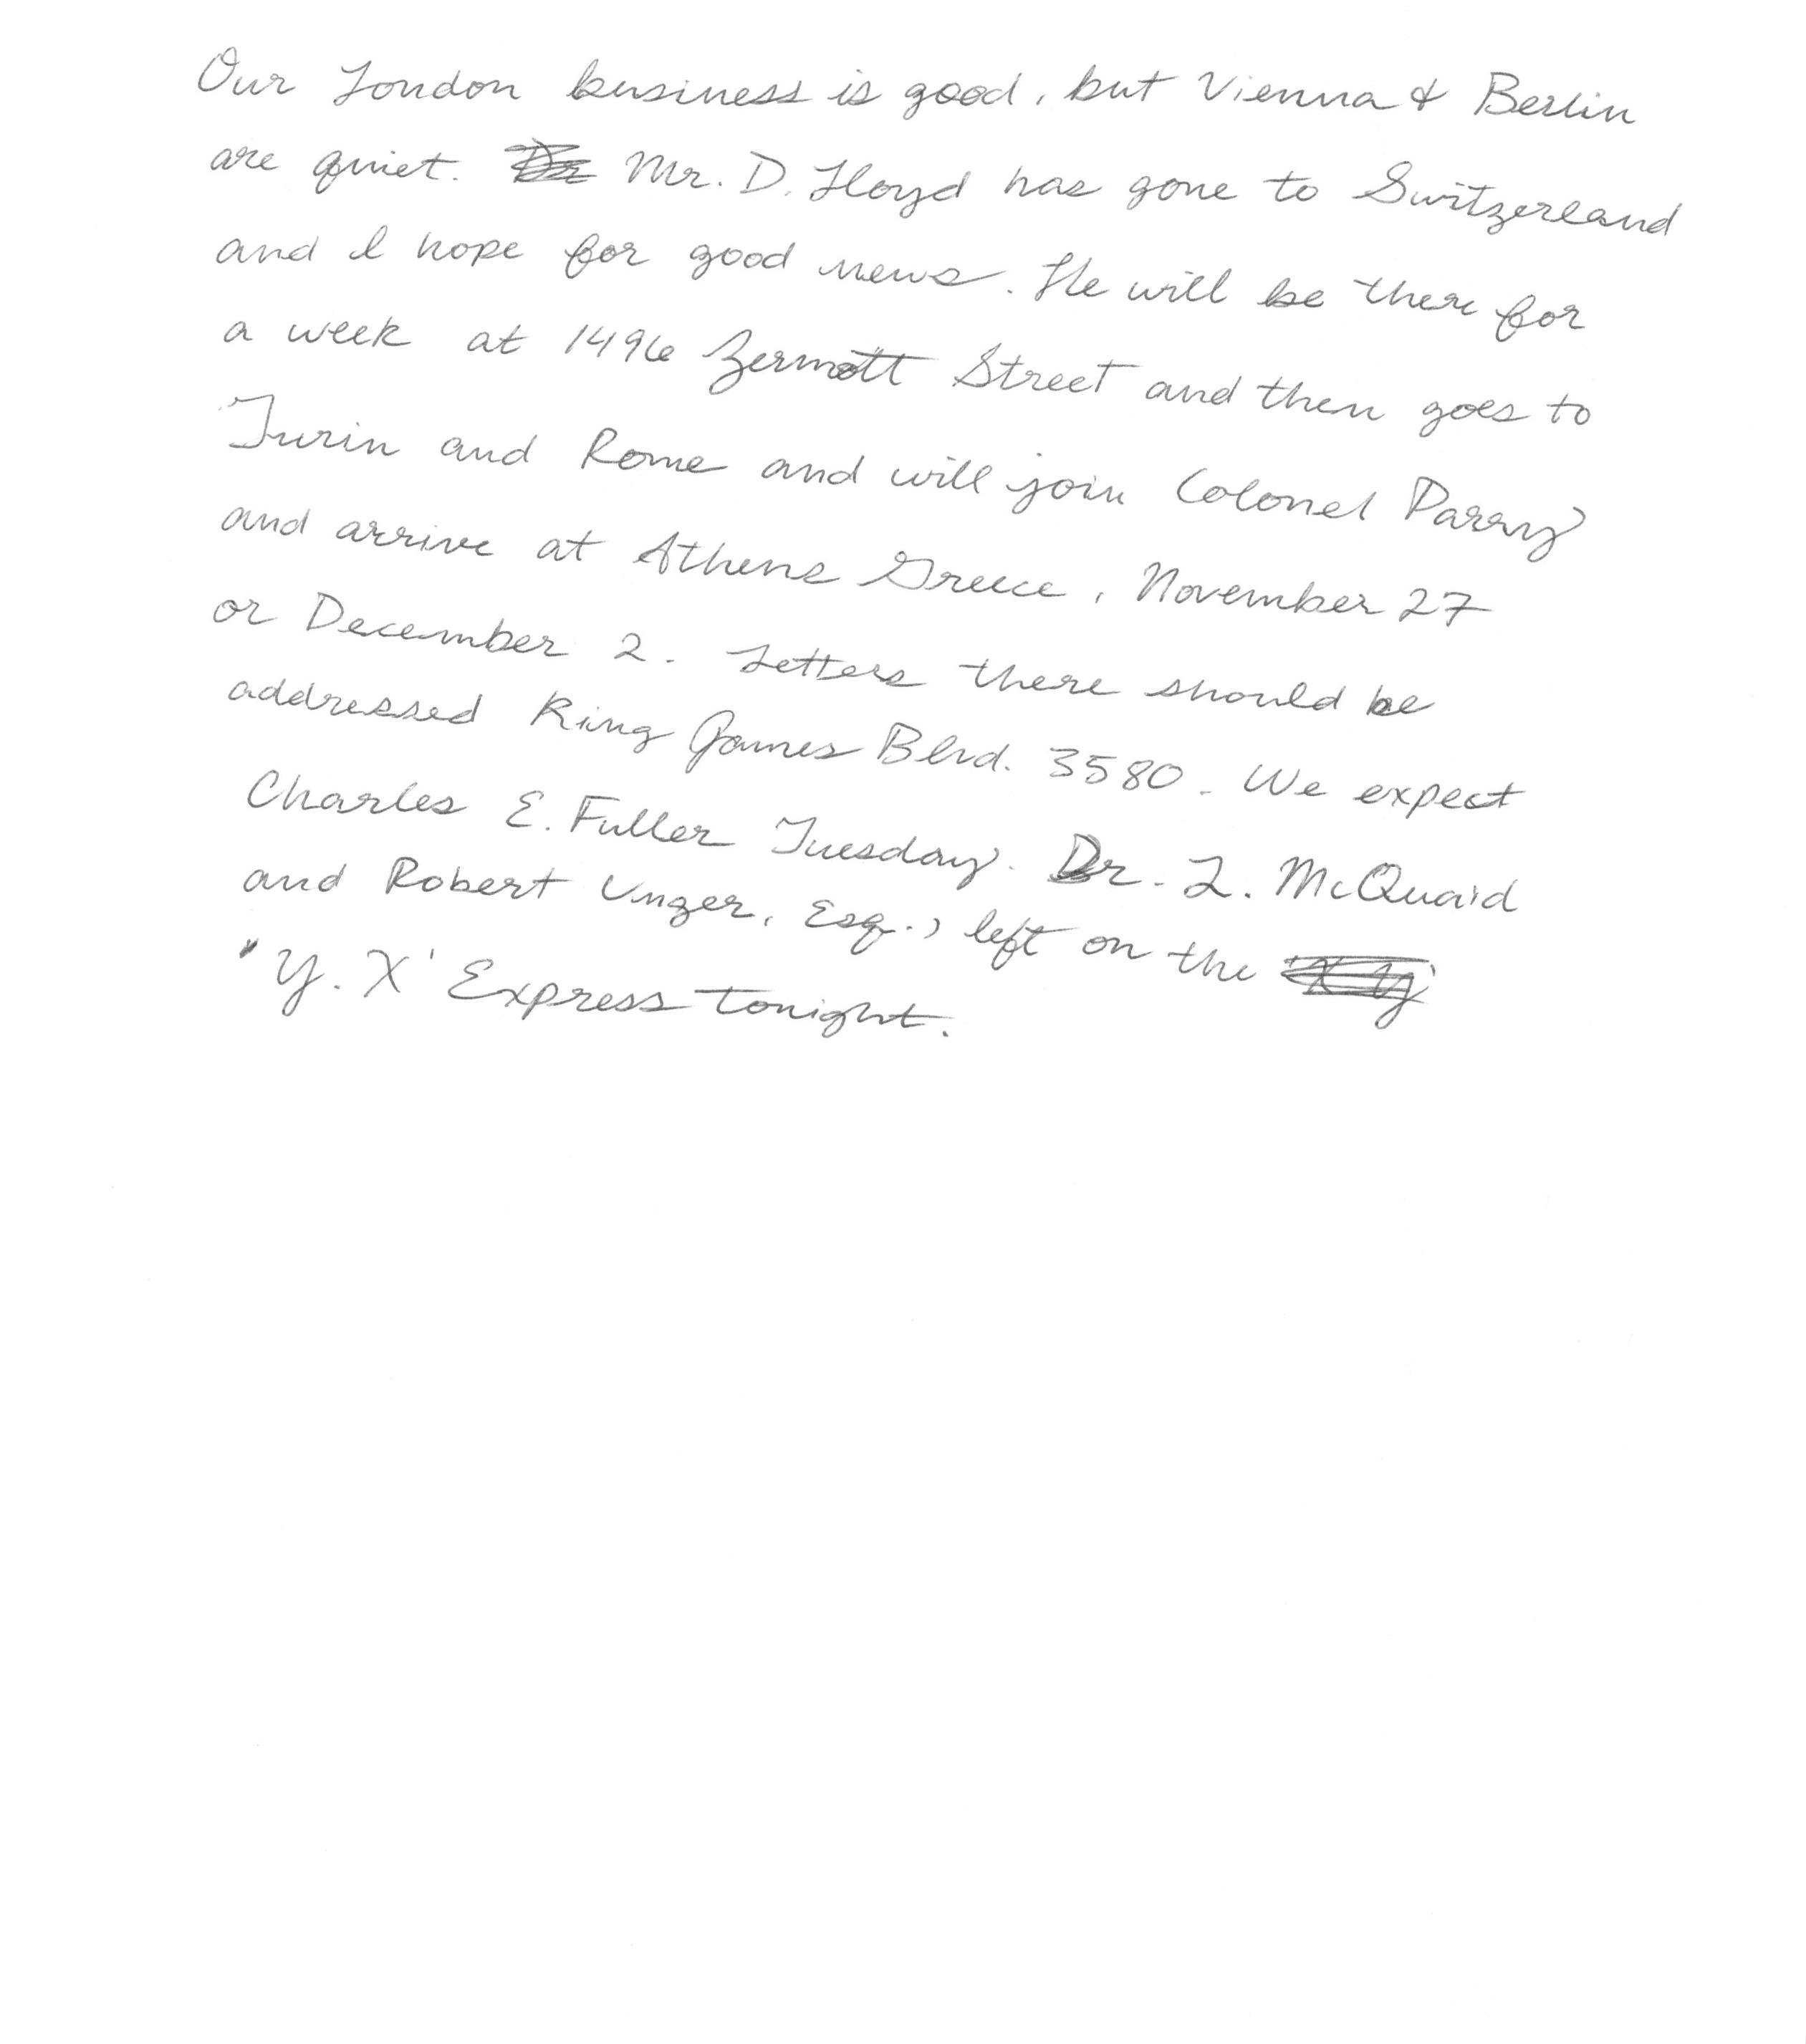 Our London business is good, but Vienna & Berlin
are quiet. Mr. D. Lloyd has gone to Switzerland
and I hope for good news. He will be there for
a week at 1496 Zermott Street and then goes to
Turin and Rome and will join Colonel Parry
and arrive at Athens Greece, November 27
or December 2. Letters there should be
addressed King James Blvd. 3580. We expect
Charles E. Fuller Tuesday. Dr. L. McQuaid
and Robert Unger, Esq., left on the
"Y. X' Express tonight.